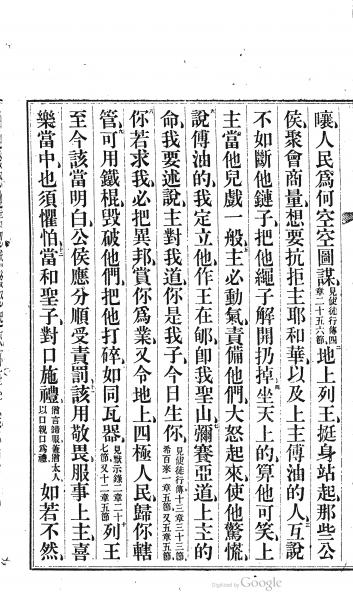 嚷、人民爲何空空圖謀、見使徒行傳四章二十五六節、地上列王、挺身站起、那些公
侯、聚會商量、想要抗拒主耶和華、以及上主傅油的人、互說
不如斷他鏈子、把他繩子解開扔掉、坐天上的、算他可笑、上
主當他兒戲一般、主必動氣、責備他們、大怒起來、使他驚慌、
說傅油的、我定立他、作王在郇、卽我聖山、彌賽亞道、上主的
命、我要述說、主對我道、你是我子、今日生你、見使徒行傳十三章三十三節、希百來一章五節、又五章五節、
你若求我、必把異邦、賞你爲業、又令地上四極人民、歸你轄
管、可用鐵棍、毀破他們、把他打碎、如同瓦器、見默示錄二章二十七節、又十二章五節、列王
至今、該當明白、公侯應分順受責罰、該用敬畏、服事上主、喜
樂當中、也須懼怕、當和聖子對口施禮、猶言歸服、蓋猶太人以口親口爲禮、如若不然、
Digitized by Google